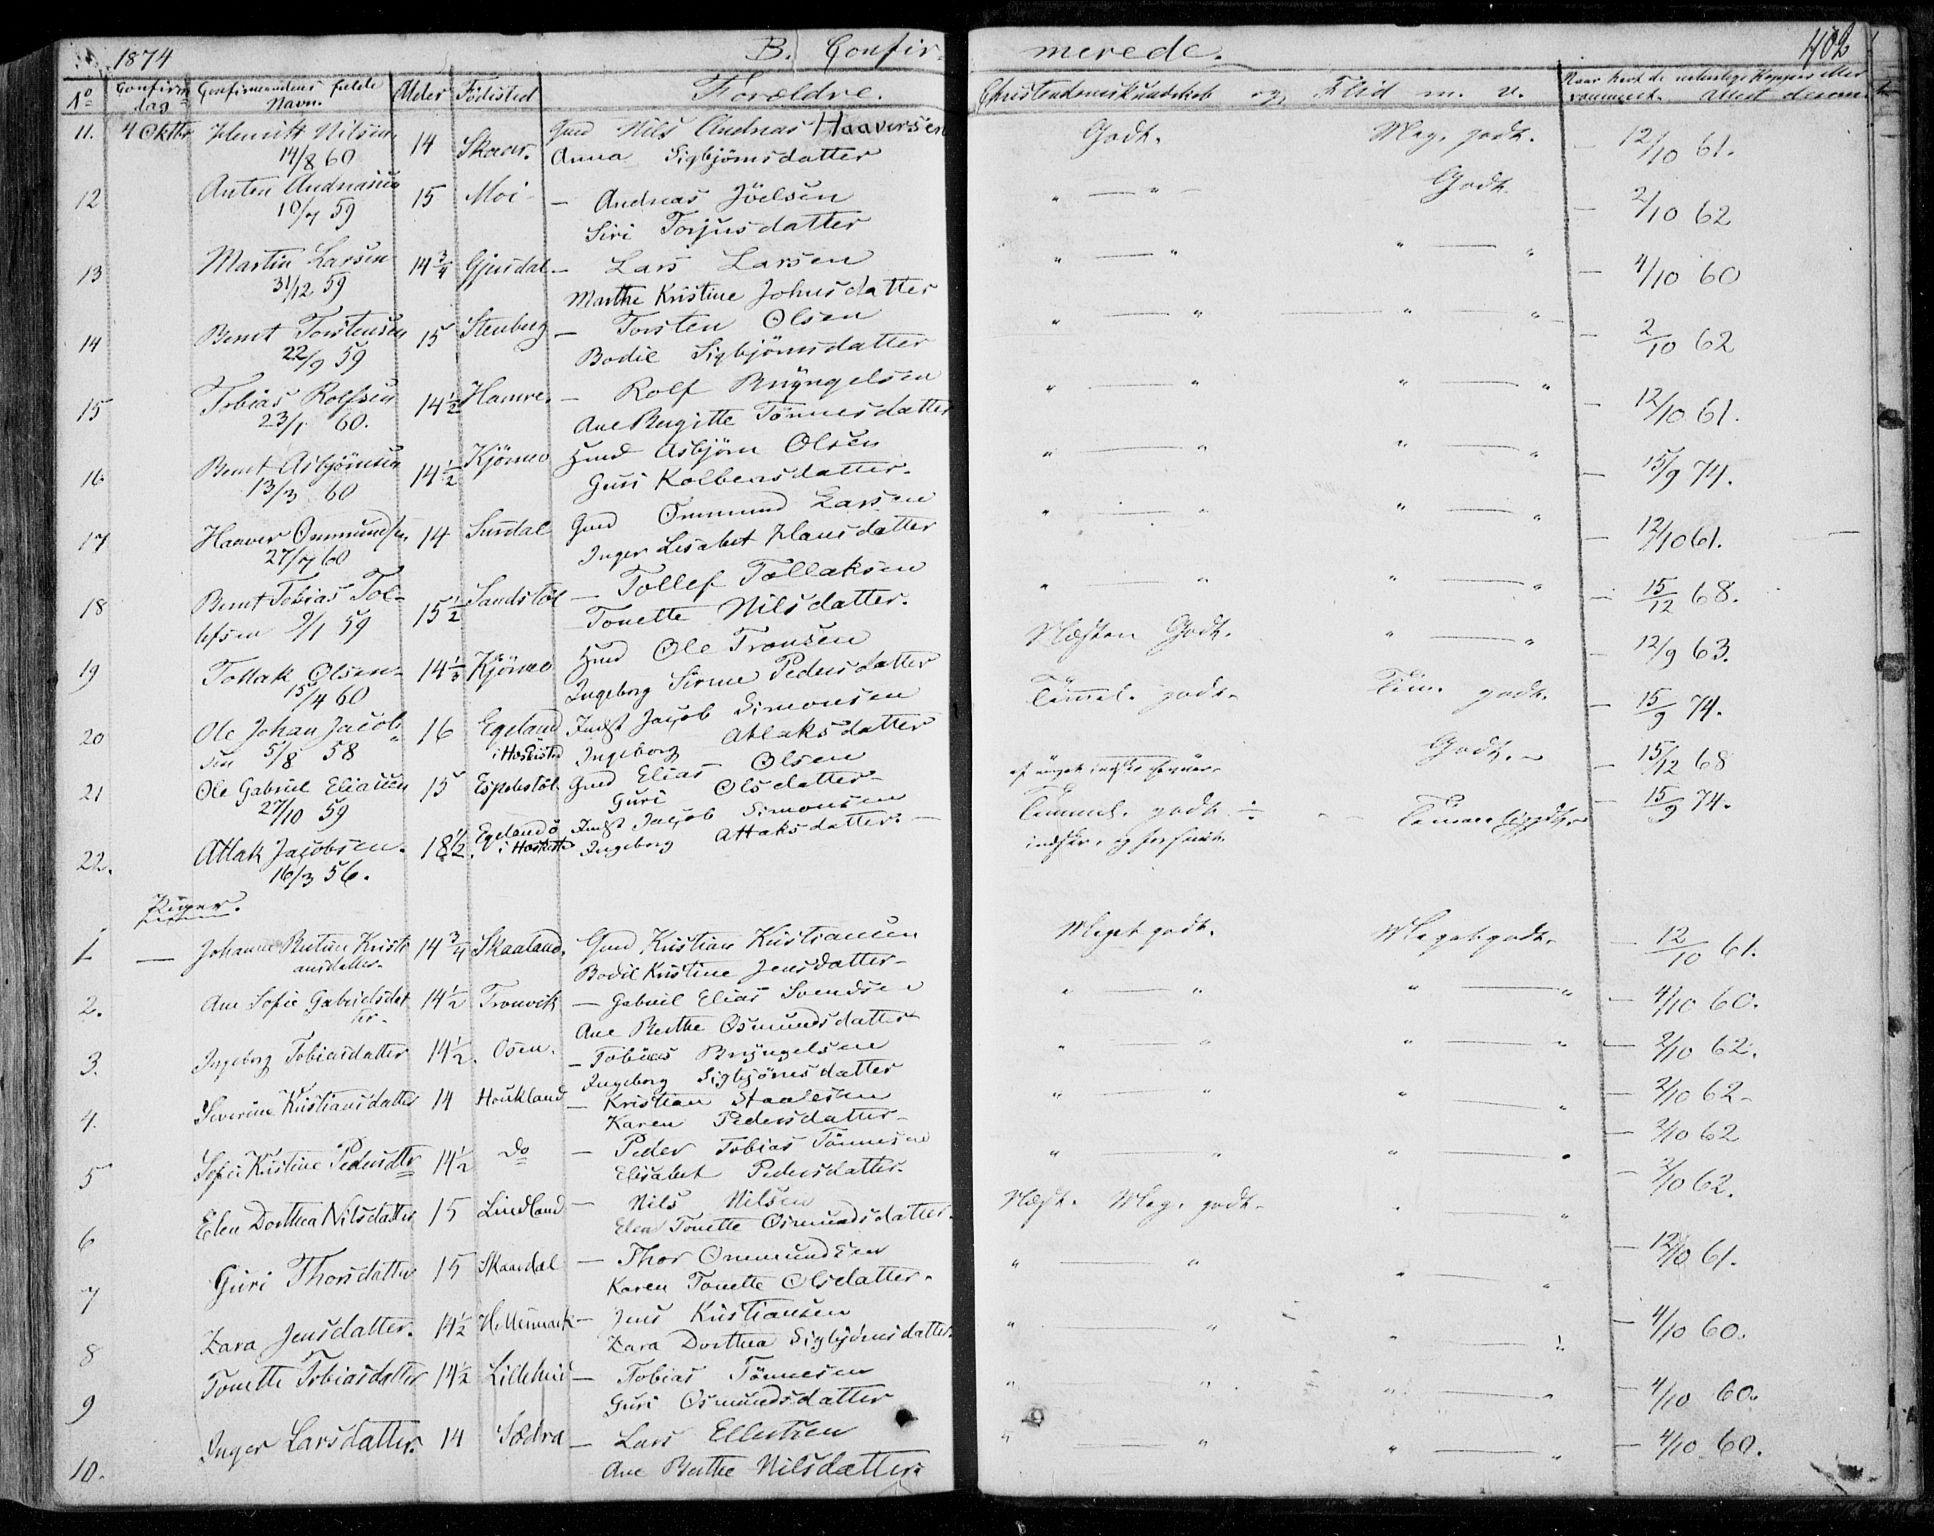 1874 B. Confirmerede. 402
No Confirm dag Confirmandens fulde Navn. Alder Fødested Forældre. Christendomskundskab og Flid m. v. Naar havt de naturlige Kopper eller vaccineret. Attest
11. 4 Oktbr Henrik Nilsen 14/8 60 14 Skaar. Gmd Nils Andreas Haaversen Godt. Meg. godt. — 12/10 61.
Anna Sigbjörnsdatter
12 Anton Andreasen 10/7 59 15 Moi — Andreas Jöelsen " — " — Godt — 2/10 62
Siri Torjusdatter
13 Martin Larsen 31/12 59 14 3/4 Gjusdal — Lars Larsen " — " " — " — 4/10 60
Marthe Kristine Johnsdatter
14 Bernt Torstensen 22/9 59 15 Stenberg — Torsten Olsen " — " — " — " — 2/10 62
Bodil Sigbjörnsdatter
15 Tobias Rolfsen 23/1 60. 14 1/2 Hamre. — Rolf Bryngelsen " — " " — " — 12/10 61.
Ane Bergitte Tönnesdatter
16 Bernt Asbjörnsen 13/3 60 14 1/2 Kjörmo Hmd Asbjörn Olsen " — " " — " — 15/9 74.
Guri Kolbensdatter.
17 Haaver Ommundsen 27/7 60 14 Surdal Gmd Ommund Larsen " — " " — " — 12/10 61.
Inger Lisabet Hansdatter
18 Bernt Tobias Tollefsen 9/1 59 15 1/2 Sandstöl — Tollef Tollaksen " — " " — " — 15/12 68.
Tonette Nilsdatter.
19 Tollak Olsen 15/4 60 14 1/2 Kjörmo Hmd Ole Tronsen Næsten Godt. " — " — 12/9 63.
Ingeborg Sirine Pedersdatter
20 Ole Johan Jacobsen 5/8 58 16 Egeland i Hæskestad Indst Jacob Simonsen Temmel. godt. Tem. godt. — 15/9 74.
Ingeborg Atlaksdatter
21 Ole Gabriel Eliassen 27/10 59 15 Espelistöl Gmd Elias Olsen Godt. — 15/12 68
Guri Olsdatter
22. Atlak Jacobsen. 16/3 56. 18 1/2 Egeland i Hæskestd Indst Jacob Simonsen Temmel. godt — 15/9 74.
Ingeborg Atlaksdatter.
Piger.
1 — Johanne Bertine Kristiansdatter. 14 3/4 Skaaland. Gmd Kristian Kristiansen Meget godt. Meget godt. — 12/10 61.
Bodil Kristine Jensdatter
2. Ane Sofie Gabrielsdatter. 14 1/2 Tronvik — Gabriel Elias Svendsen " — " " — " — 4/10 60.
Ane Berthe Osmundsdatter
3. Ingeborg Tobiasdatter 14 1/2. Osen. — Tobias Bryngelsen " — " " — " — 2/10 62.
Ingeborg Sigbjörnsdatter
4. Severine Kristiansdatter 14 Houkland — Kristian Staalesen " — " " — " — 2/10 62
Karen Pedersdatter
5 Sofie Kristine Pedersdtr 14 1/2 do — Peder Tobias Tönnesen " — " " — " — 2/10 62
Elisabet Pedersdatter.
6 Elen Dorthea Nilsdatter 15 Lindland — Nils Nilsen Næst. Meg. godt. " — " 2/10 62.
Elen Tonette Osmundsdatter.
7 Guri Thorsdatter 15 Skaardal — Thor Ommundsen " — " " — " — 12/10 61.
Karen Tonette Olsdatter.
8 Zara Jensdatter. 14 1/2 Hellemark — Jens Kristiansen " — " " — " — 4/10 60.
Zara Dorthea Sigbjörnsdatter
9 Tonette Tobiasdatter 14 1/2 Lillehus — Tobias Tönnesen " — " " — " — 4/10 60.
Guri Osmundsdatter
10. Inger Larsdatter. 14 Sædra — Lars Ellertsen " — " " — " — 4/10 60.
Ane Berthe Nilsdatter.